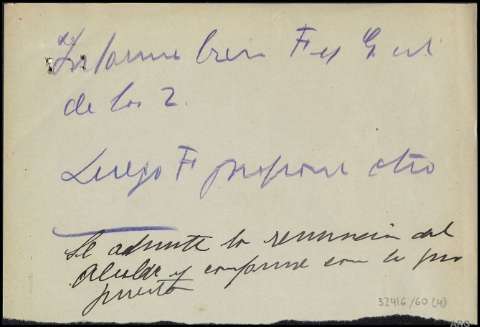 Informe bien F y G Civil
de los 2.
Luego F propone otro
Se admite la renuncia del
Alcalde y conforme con lo pro
puesto
32416/60 (4)